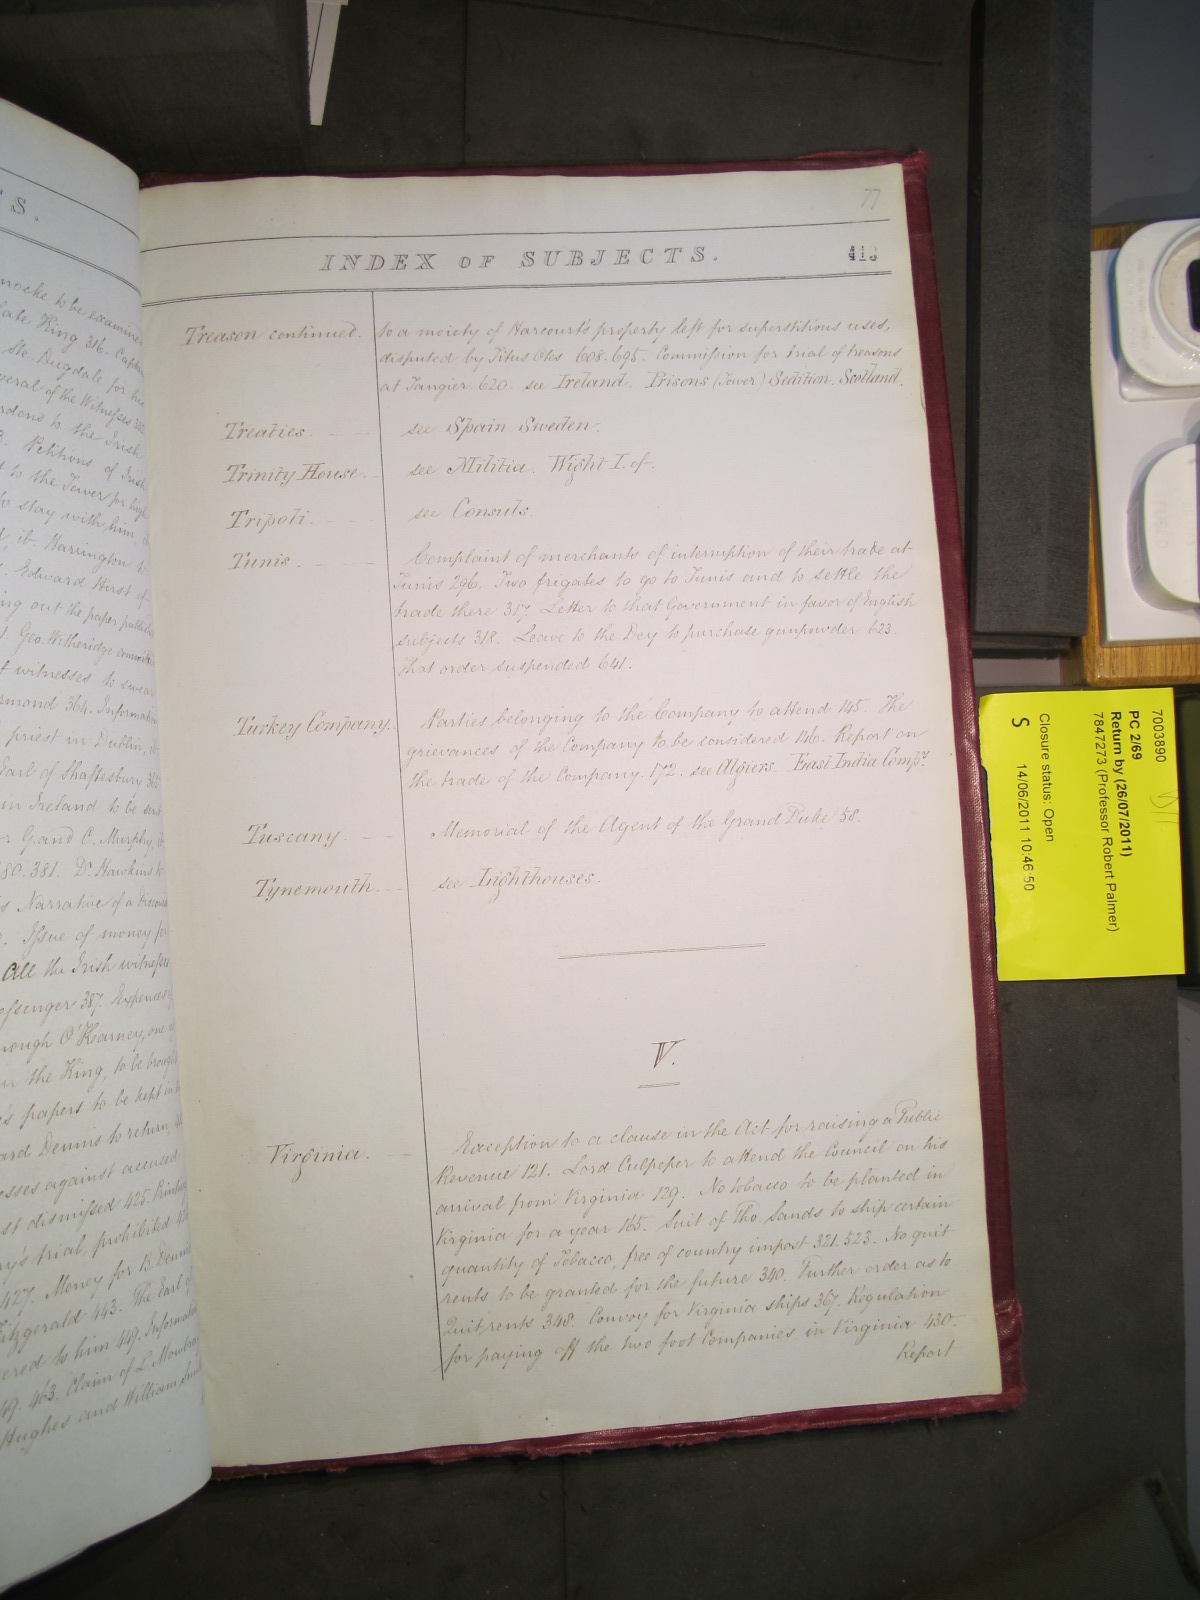 S.
to be examined
late King 316. Capt
Ste. Dugdale for his
several of the Witnesses
to the Irish
Petitions of Irish
to the Tower for high
to stay with him
it. Harrington to
Edward Hurst of
ing out the paper
Geo. Witheridge
witnesses to swear
364. Information
priest in Dublin,
Earl of Shaftesbury
in Ireland to be sent
G. and C. Murphy
380. 381. Dr Hawkins
Narrative of a
Issue of money for
All the Irish witnesses
Messenger 387. Expences
O'Kearney, one
the King, to be brought
papers to be kept in
and Dennis to return,
against accused
dismissed 425. Printing
trial, prohibited
427. Money for B. Dennis
Fitzgerald 443. The Earl of
to him 449. Information
463. Claim of L.
Hughes and William
77
INDEX OF SUBJECTS.
413
Treason continued. to a moiety of Harcourt's property left for superstitious uses,
disputed by Titus Otes 608. 695. Commission for trial of treasons
at Tangier. 620. see Ireland. Prisons (Tower) Sedition. Scotland.
Treaties. see Spain Sweden.
Trinity House. see Militia. Wight I. of.
Tripoli see Consuls.
Tunis. Complaint of merchants of interruption of their trade at
Tunis 296. Two frigates to go to Tunis and to settle the
trade there 317. Letter to that Government in favor of English
subjects 318. Leave to the Dey to purchase gunpowder 623.
that order suspended 641.
Turkey Company. Parties belonging to the Company to attend 145. The
grievances of the Company to be considered 146. Report on
the trade of the Company. 172. see Algiers East India Compy.
Tuscany. Memorial of the Agent of the Grand Duke 58.
Tynemouth. see Lighthouses.
V.
Virginia. Exception to a clause in the Act for raising a Public
Revenue 121. Lord Culpeper to attend the Council on his
arrival from Virginia 129. No tobacco to be planted in
Virginia for a year 165. Suit of Tho. Sands to ship certain
quantity of Tobacco, free of country impost 321. 523. No quit
rents to be granted for the future 340. Further order as to
Quit rents 348. Convoy for Virginia ships 367. Regulation
for paying off the two foot Companies in Virginia 430.
Report
7003890
PC 2/69
Return by (26/07/2011)
7847273 (Professor Robert Palmer)
Closure status: Open
S 14/06/2011 10:46:50